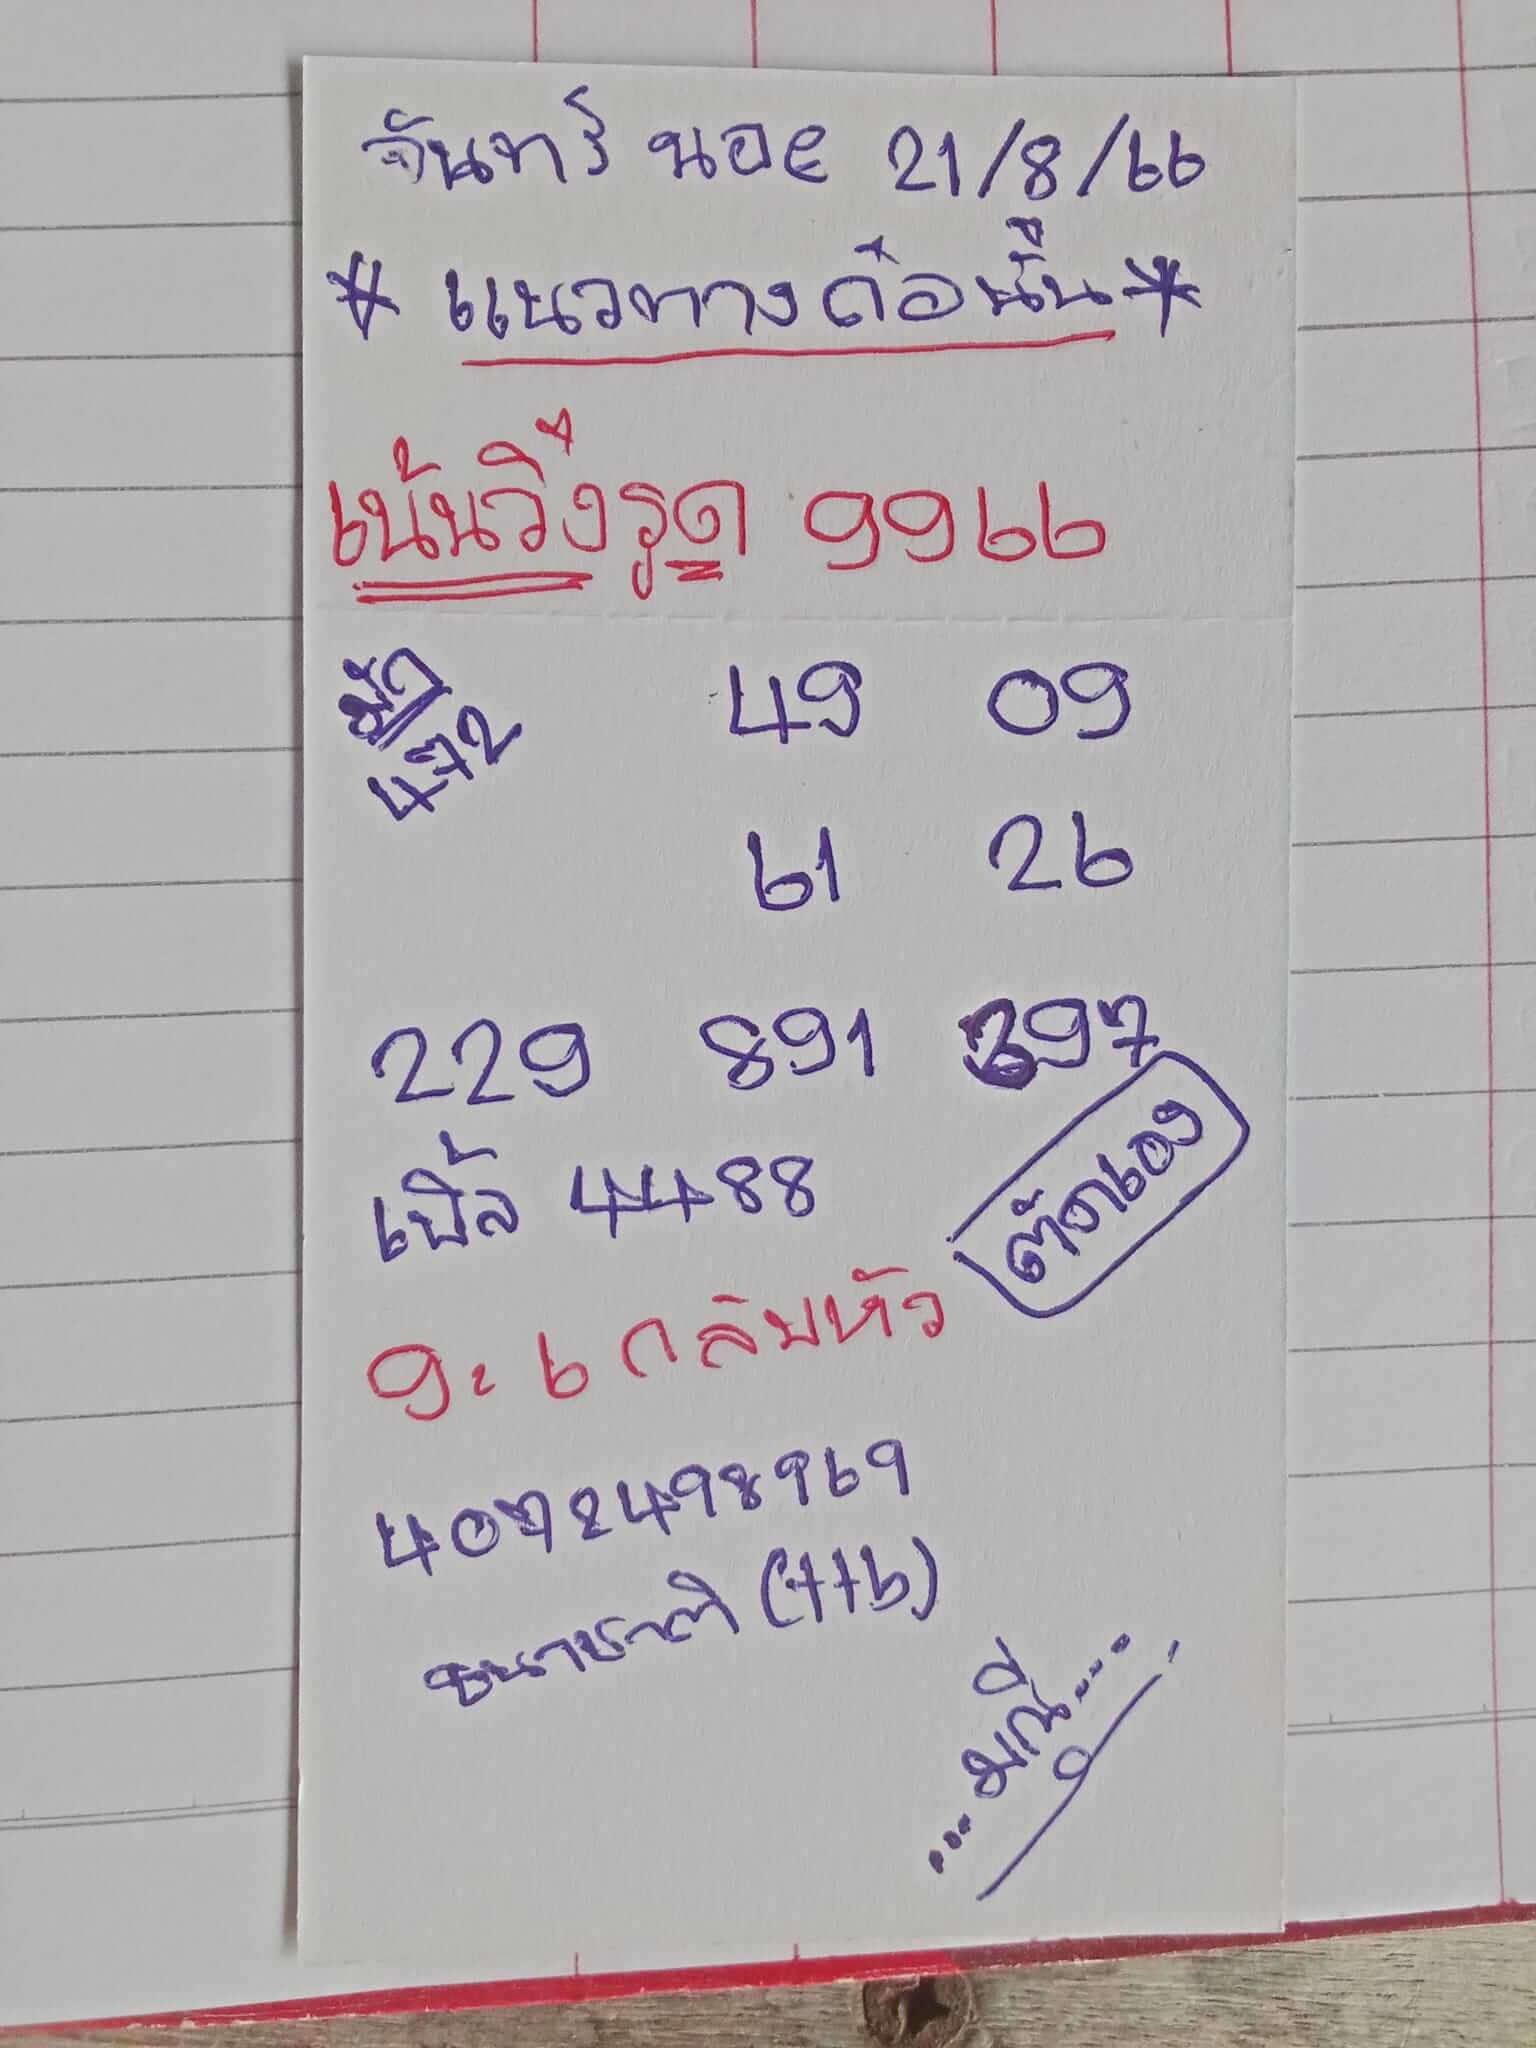 จันทร์ นอย 21/8/66
* แนวทางคือนั้น *
เน้นวิ่งรูด 9966
49 09
472
61 26
229 891 397
เบิ้ล 4488
ตัดเอง
9-6 กลับหัว
4072498969
ธนาชาติ (ttb)
...มณี...